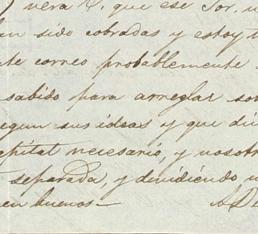 verá V. que ese Sor.
sido cobradas y estoy
correo probablemente
sabido para arreglar
segun sus ideas y que
necesario, y nosotr
separada, y dividiendo
en buenos